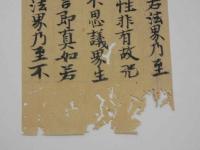 若法界乃至
性非有故説
不思議界生
言即真如若
法界乃至不